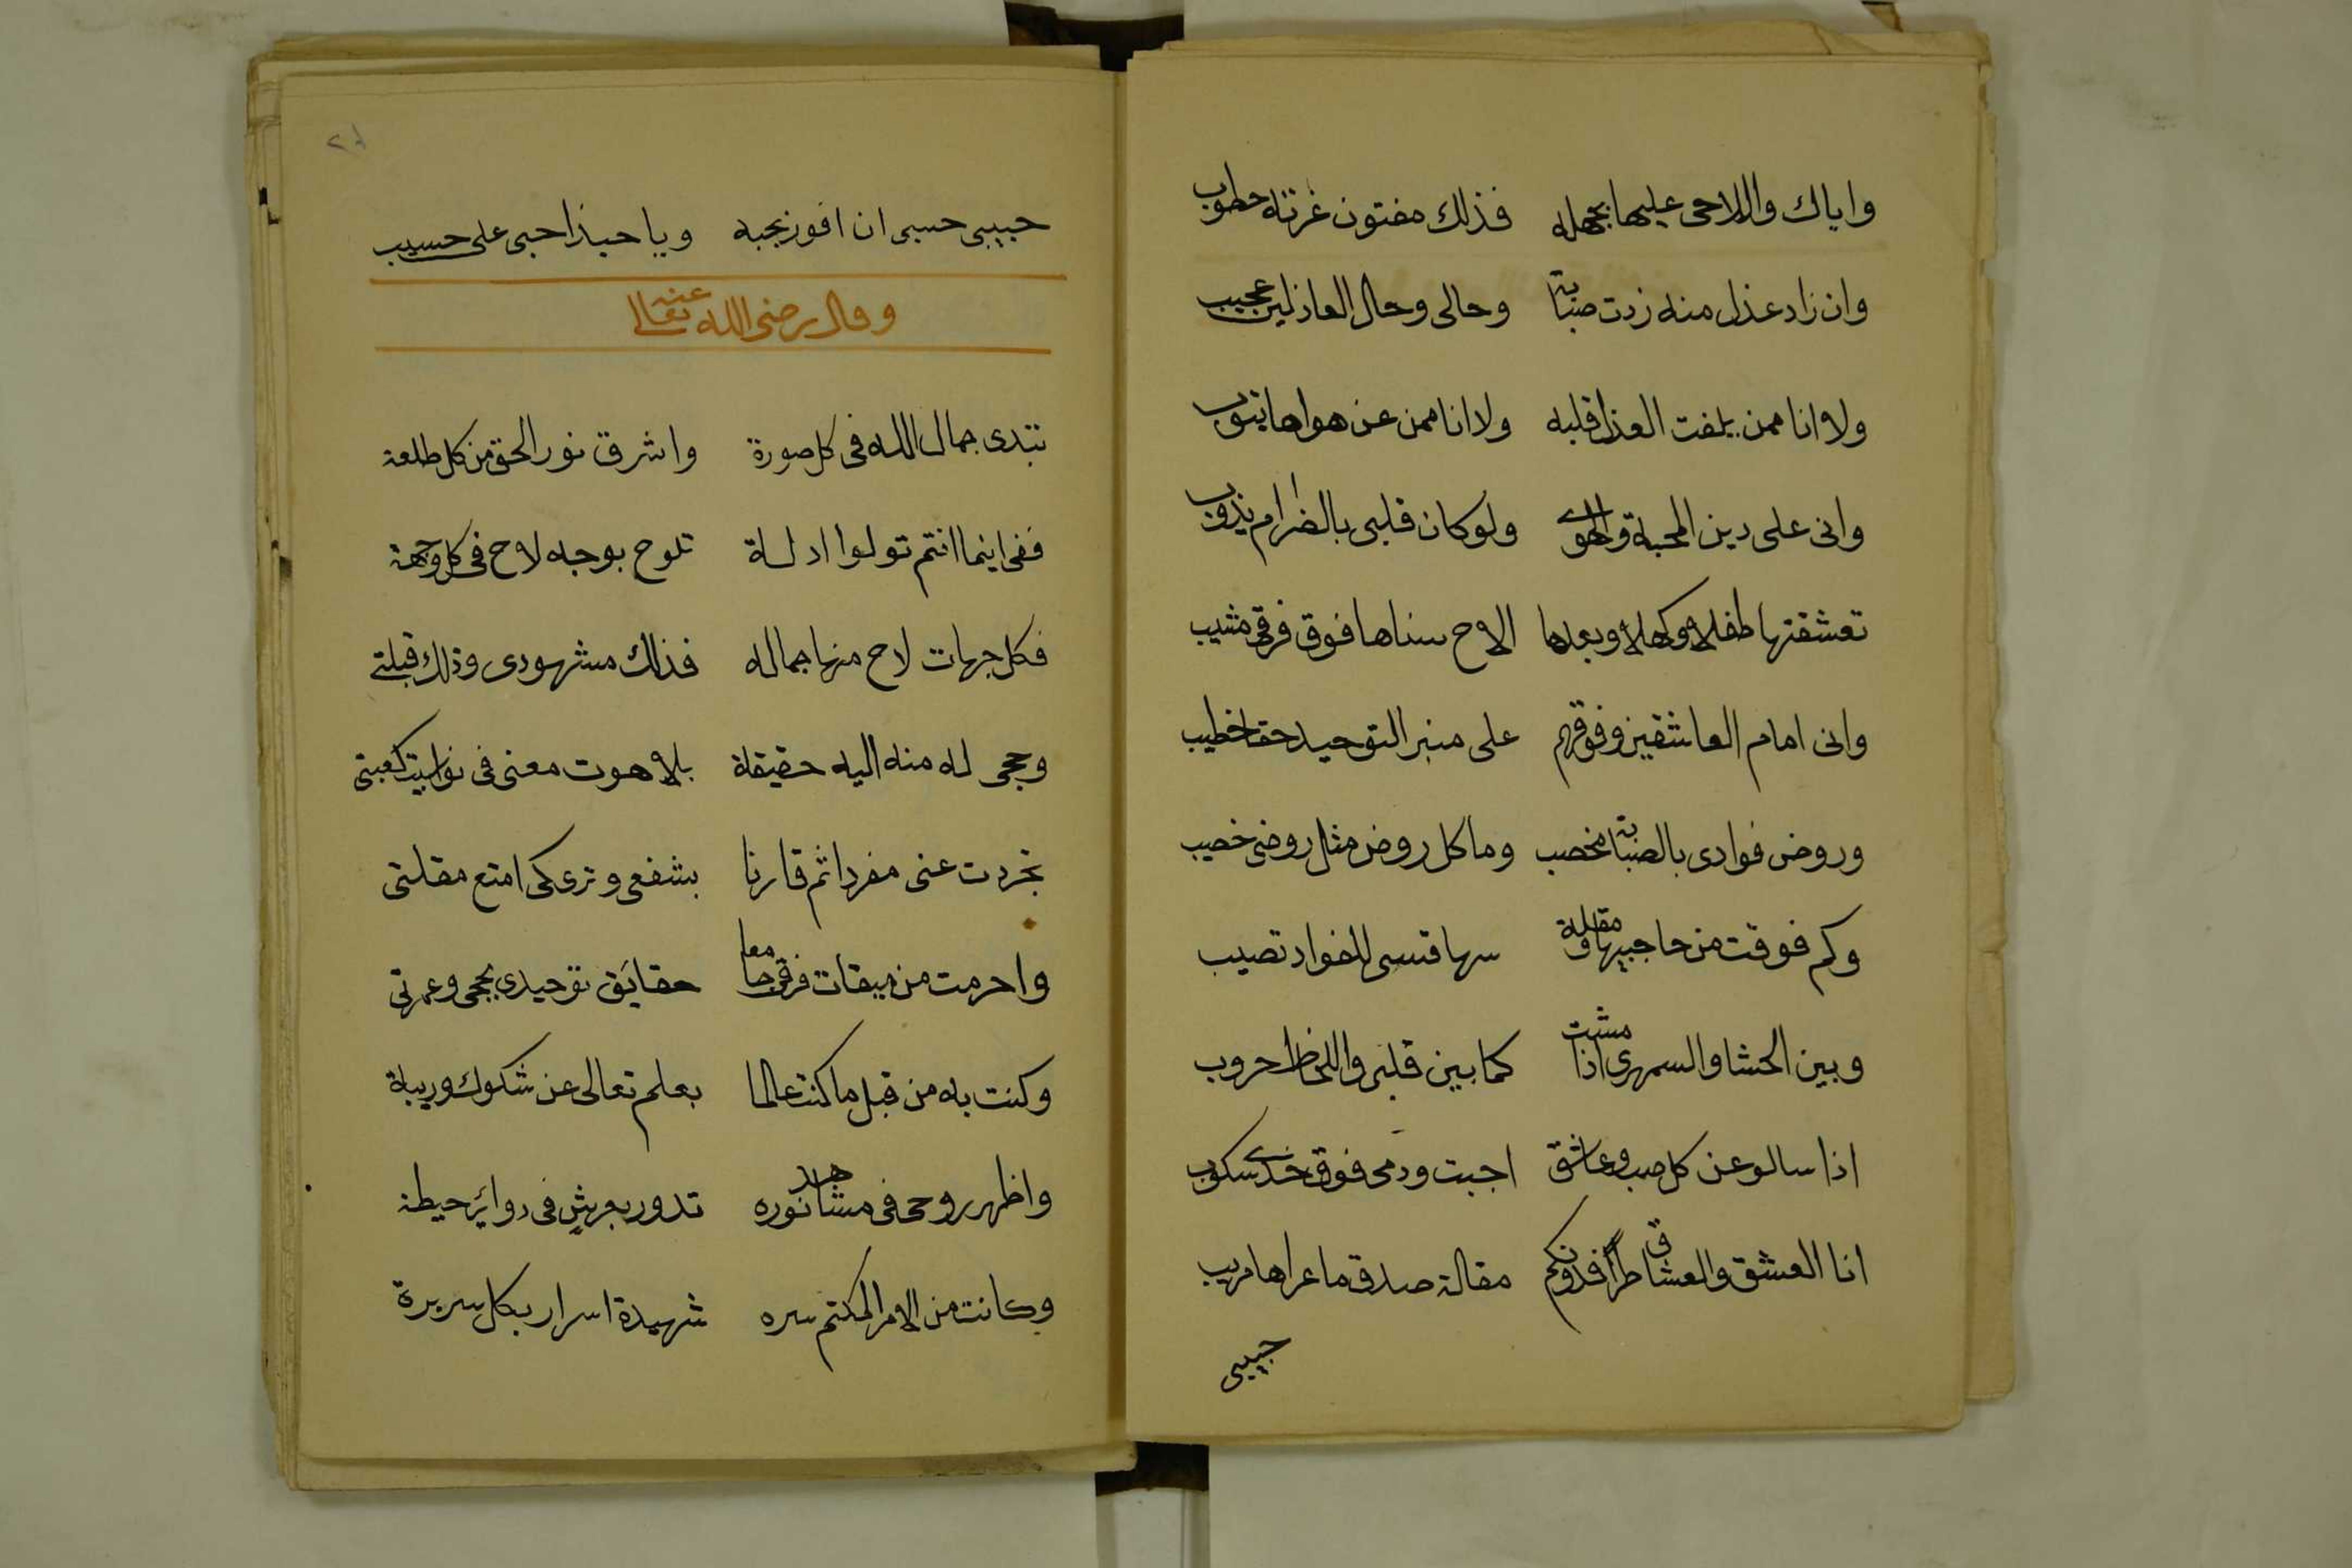 واياك واللاحى عليها بجهله فذلك مفتون غرته خطوب
وان زاد عذل منه زدت صبابة وحالى وحال العاذلين عجيب
ولا انا ممن يلفت العذل قلبه ولا انا ممن عن هواها يتوب
وانى على دين المحبة والهوى ولو كان قلبى بالضرام يذوب
تعشقتها طفلا وكهلا وبعدها الاح سناها فوق فرقى مشيب
وانى امام العاشقين وفوقهم على منبر التوحيد حقا خطيب
وروض فوادى بالصبابة مخصب وما كل روض مثل روضى خصيب
وكم فوقت من حاجبيها ومقلة سها قسى للفواد تصيب
وبين الحشا والسمهرى اذا مشت كما بين قلبى واللحاظ حروب
اذا سالو عن كل صب وعاشق اجبت ودمعى فوق خدى سكوب
انا العشق والعشاق طراً فدونكم مقالة صدق ما عراها مريب
حبيبى
حبيبى حسبى ان افوز بحبه ويا حبذا حبى على حسيب
وقال رضى الله تعالى عنه
تبدى جمال الله فى كل صورة واشرق نور الحق من كل طلعة
ففى اينما انتم تولوا ادلة تلوح بوجه لاح فى كل وجهة
فكل جهات لاح منها جماله فذلك مشهودى وذلك قبلتى
وحجى له منه اليه حقيقة بلاهوت معنى فى كعبتى
تجردت عنى مفردا ثم قارنا بشفعى وترى كى امتع مقلتى
واحرمت من ميقات فرقى جامعا حقائق توحيدى بحجى وعمرتى
وكنت به من قبل ما كنت عالما بعلم تعالى عن شكوك وريبة
واظهر روحى فى مشاهد نوره تدور بعرشٍ فى دوائر حيطة
وكانت من الامر المكتم سره شهيدة اسرار بكل سريرة